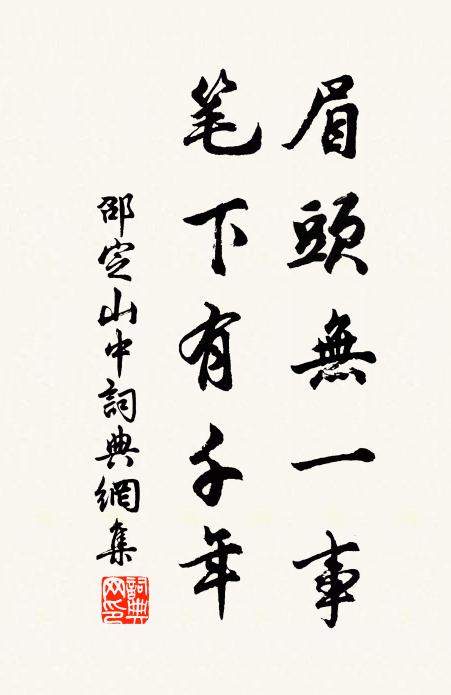 眉頭無一事
笔下有千年
邵定山中詞典網集
詞典網印